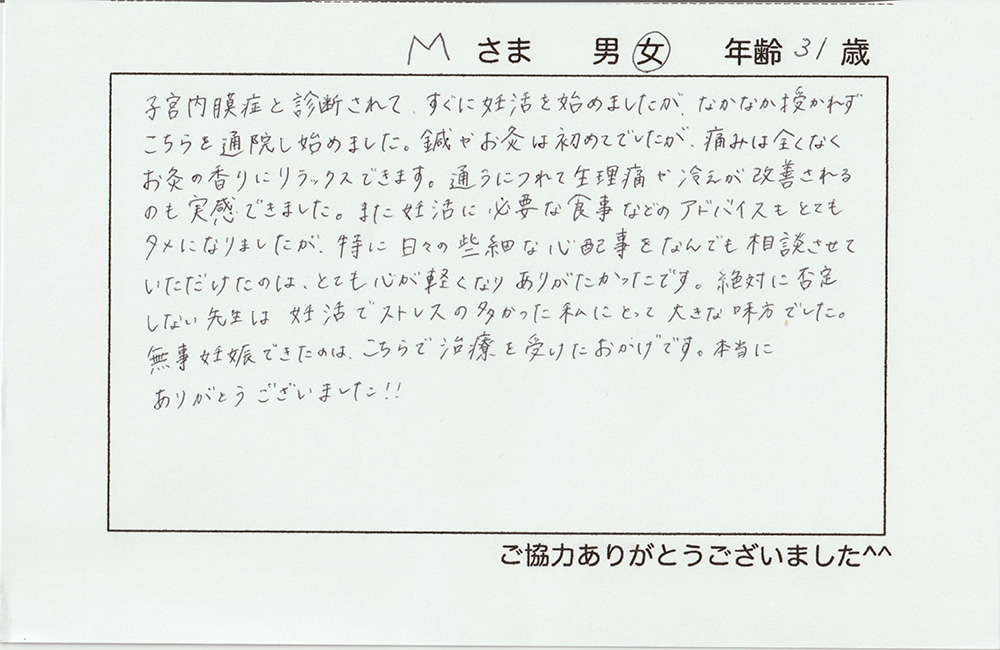 M さま 男 女 年齢 31 歳
子宮内膜症と診断されて、すぐに妊活を始めましたが、なかなか授かれず
こちらを通院し始めました。鍼やお灸は初めてでしたが、痛みは全くなく
お灸の香りにリラックスできます。通うにつれて生理痛や冷えが改善される
のも実感できました。また妊活に必要な食事などのアドバイスもとても
タメになりましたが、特に日々の些細な心配事をなんでも相談させて
いただけたのは、とても心が軽くなりありがたかったです。絶対に否定
しない先生は妊活でストレスの多かった私にとって大きな味方でした。
無事妊娠できたのは、こちらで治療を受けたおかげです。本当に
ありがとうございました!!
ご協力ありがとうございました^^